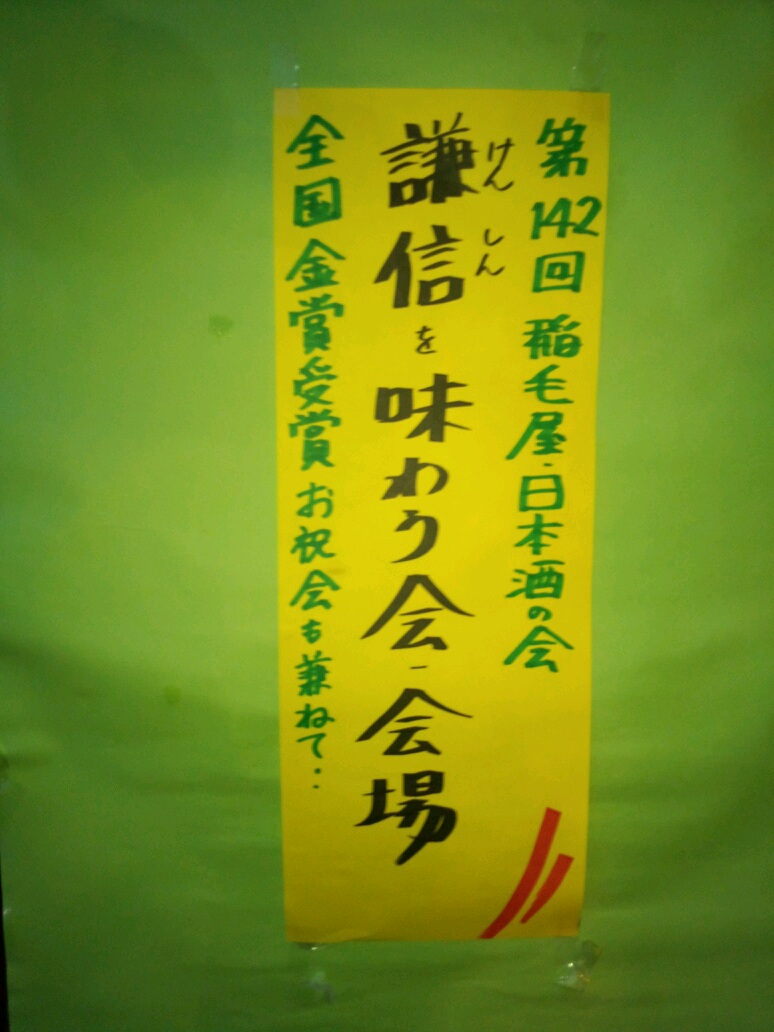 第142回 稲毛屋・日本酒の会
謙信を味わう会-会場
けんしん
全国金賞受賞お祝会も兼ねて・・